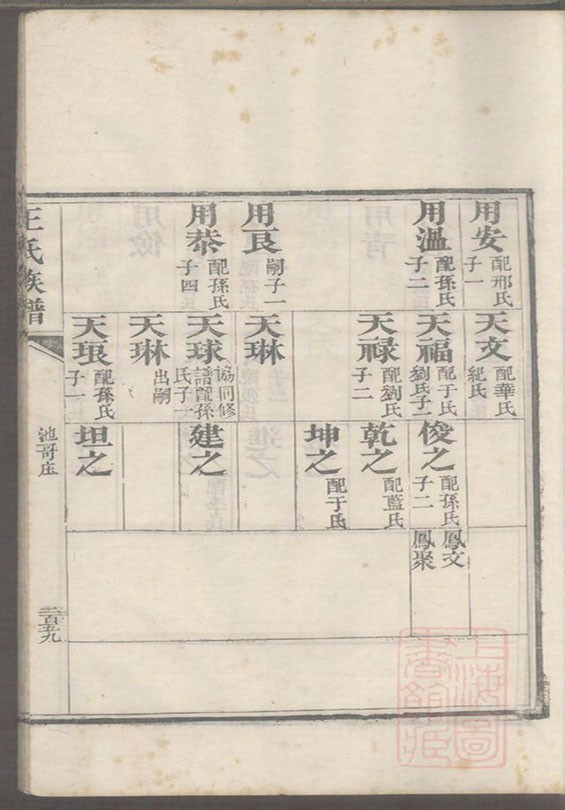 用安
配邢氏
子一
用溫
配孫氏
子二
用良
嗣子一
用恭
配孫氏
子四
王氏族譜
天文
配華氏
紀氏
天福
配于氏
劉氏子一
天祿
配劉氏
子二
天琳
天球
協同修
譜配孫
氏子一
天琳
出嗣
天琅
配孫氏
子一
俊之
配孫氏
子二
乾之
配藍氏
坤之
配于氏
建之
坦之
池哥庄
鳳文
鳳聚
二百五九
上海圖
書館藏